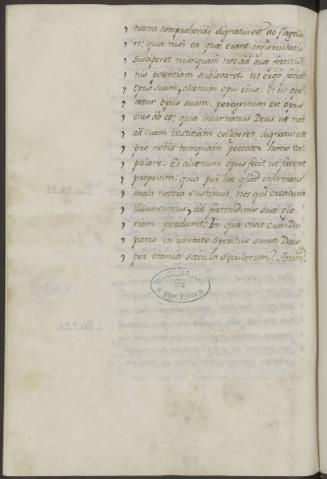 , nostra comprehendi dignatus est ac flagella
, ri; quia nisi ea quæ erant infirmitatis
, susciperet nunquam nos ad suæ fortitudi
, nis potentiam sublevaret. Ut ergo faciat
, opus suum, alienum opus eius: et ut ope
, retur opus suum, peregrinum est opus
, eius ab eo; quia incarnatus Deus ut nos
, ad suam iustitiam colligeret dignatus est
, pro nobis tanquam peccator homo va
, pulare: Et alienum opus fecit ut faceret
, proprium: quia per hoc quod infirmans
, mala nostra sustinuit, nos qui creatura
, illius sumus, ad fortitudinis suæ glo
, riam perduxit: In qua vivit cum Deo
, patre in unitate spiritus sancti Deus
, per omnia sæcula sæculorum. Amen.